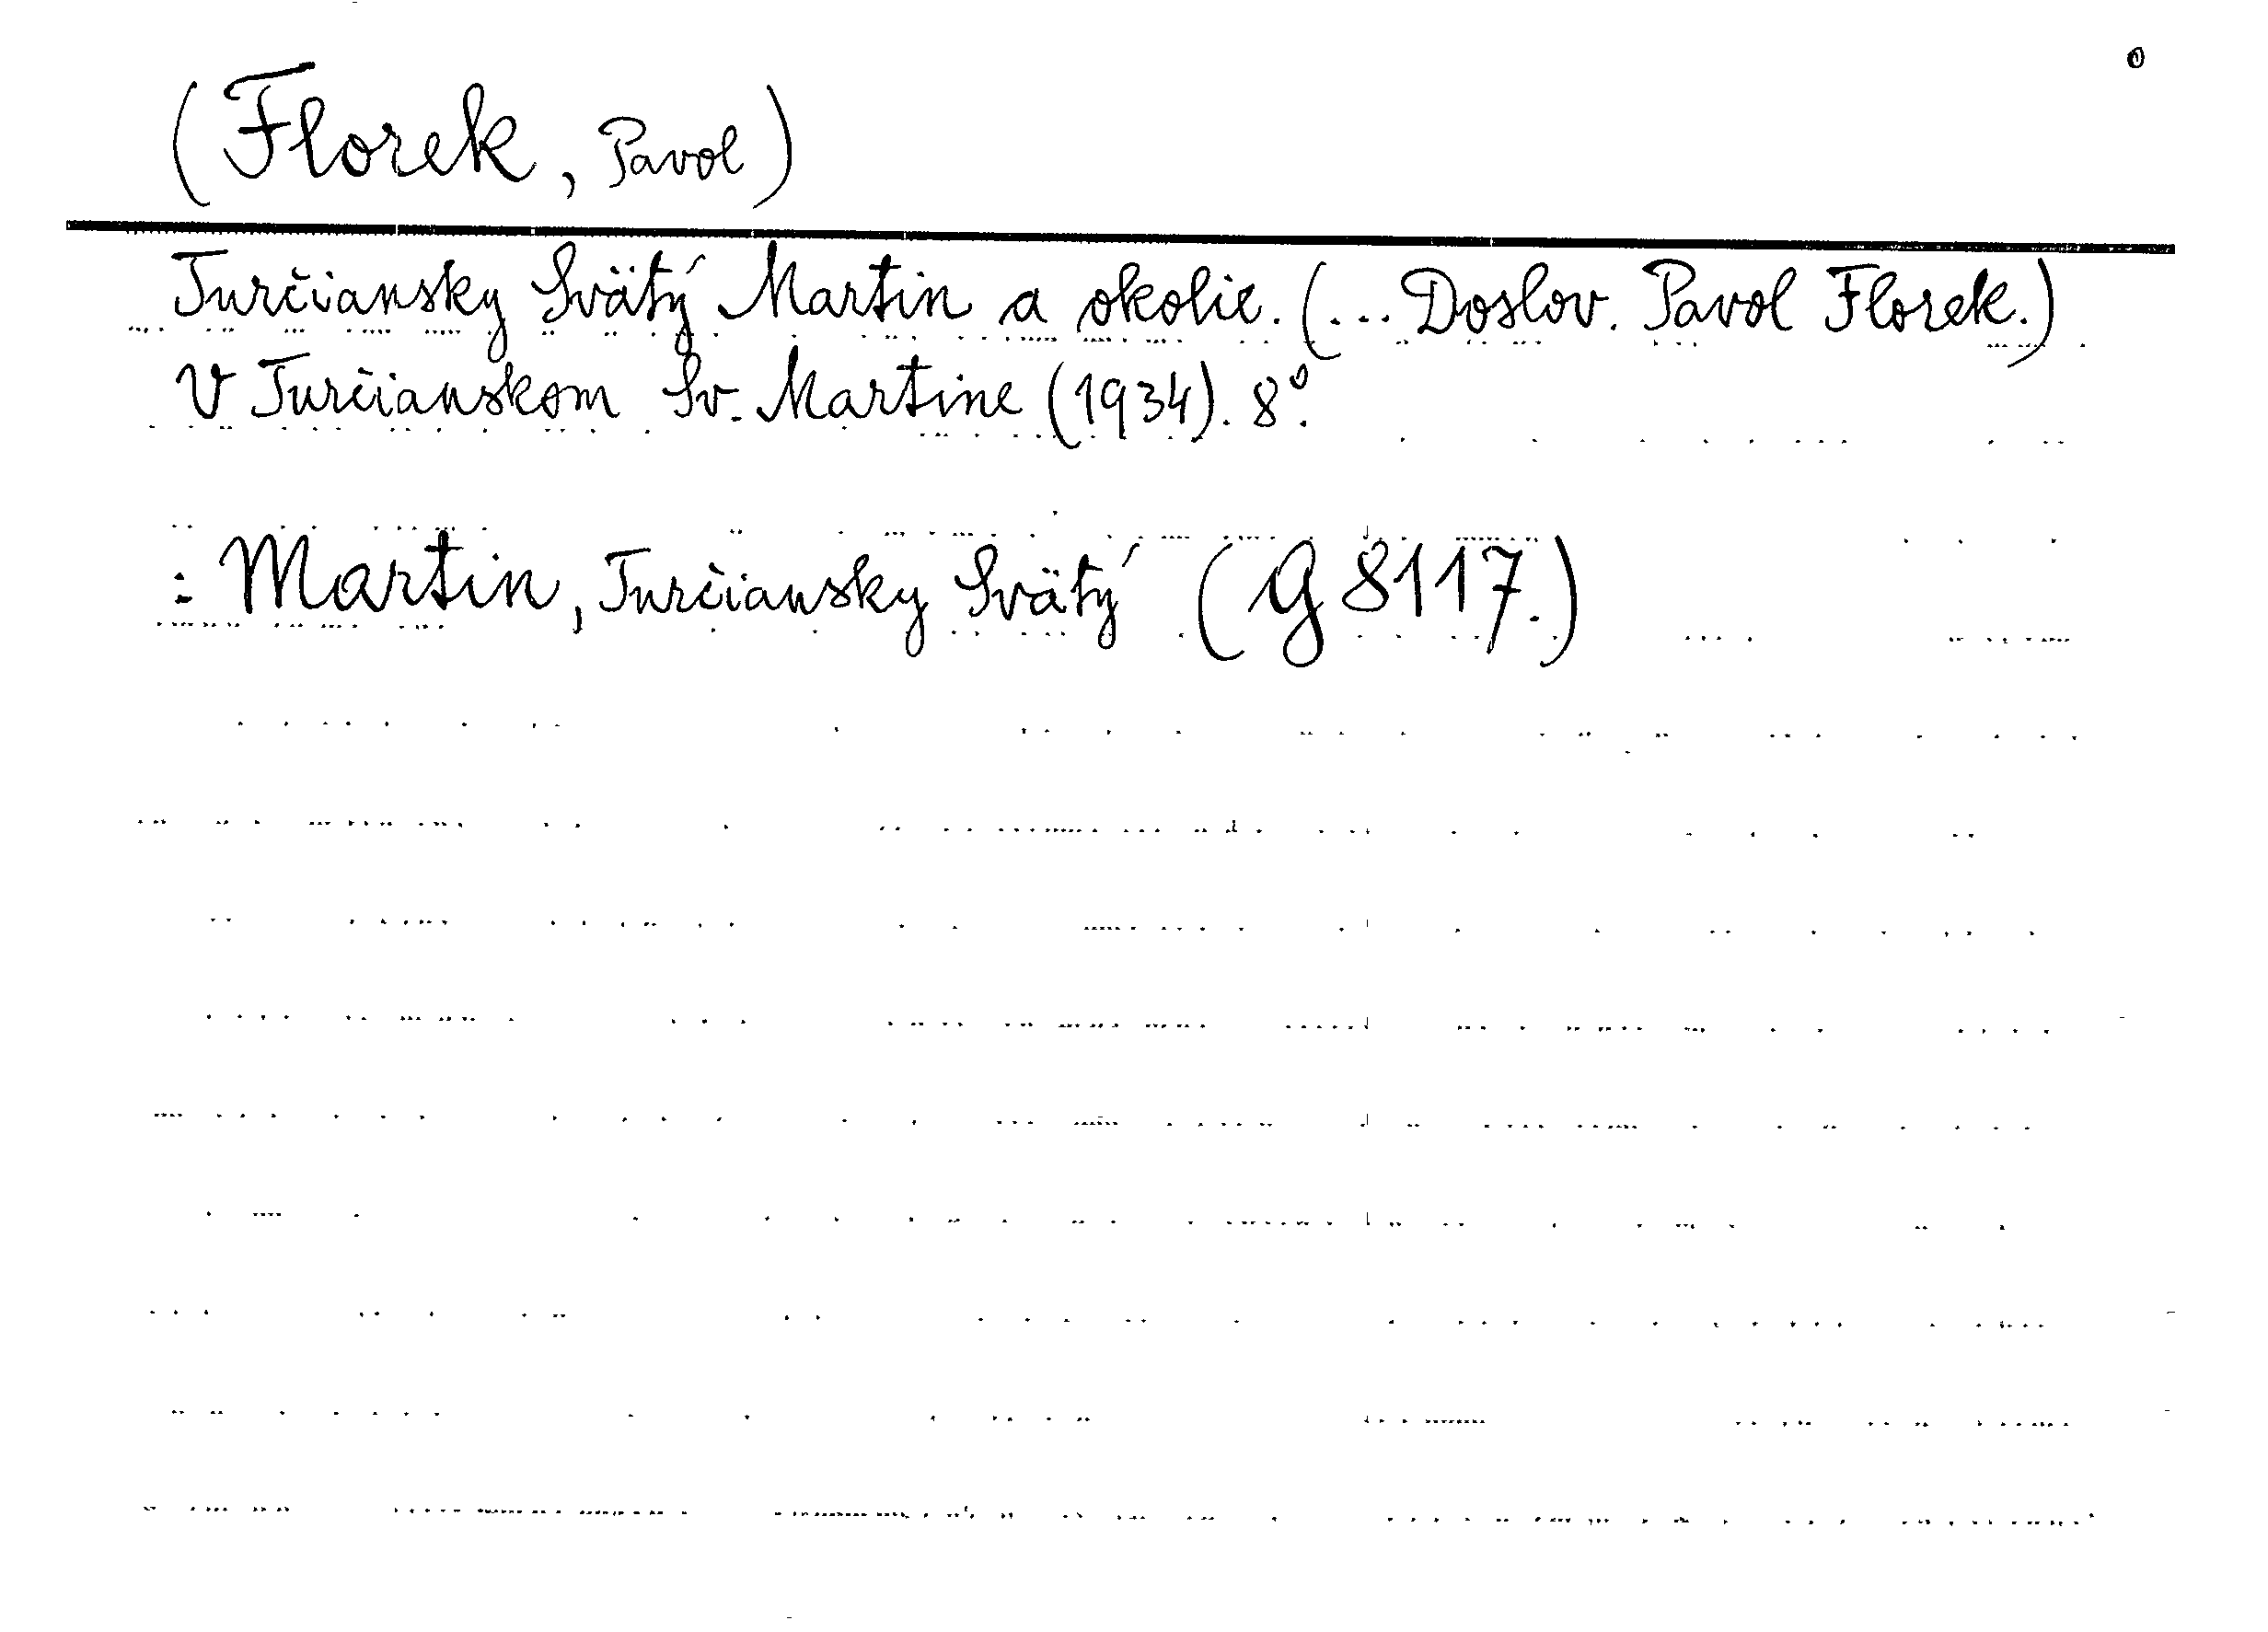 o
(Florek, Pavol)
Turčiansky Svätý Martin a okolie. (... Doslov. Pavol Florek.)
V Turčianskom Sv. Martine (1934). 8°.
: Martin, Turčiansky Svätý (G 8117.)